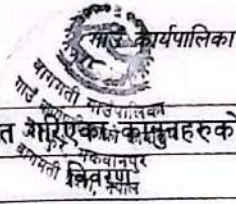 गाउँ कार्यपालिका
बागमती गाउँपालिका
त गरिएका कानुनहरुको
मकवानपुर
विवरण